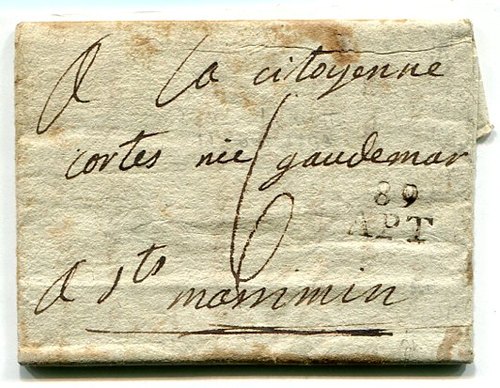 A la citoyenne
cortes nie gaudemar
6
89
APT
A sts maximin